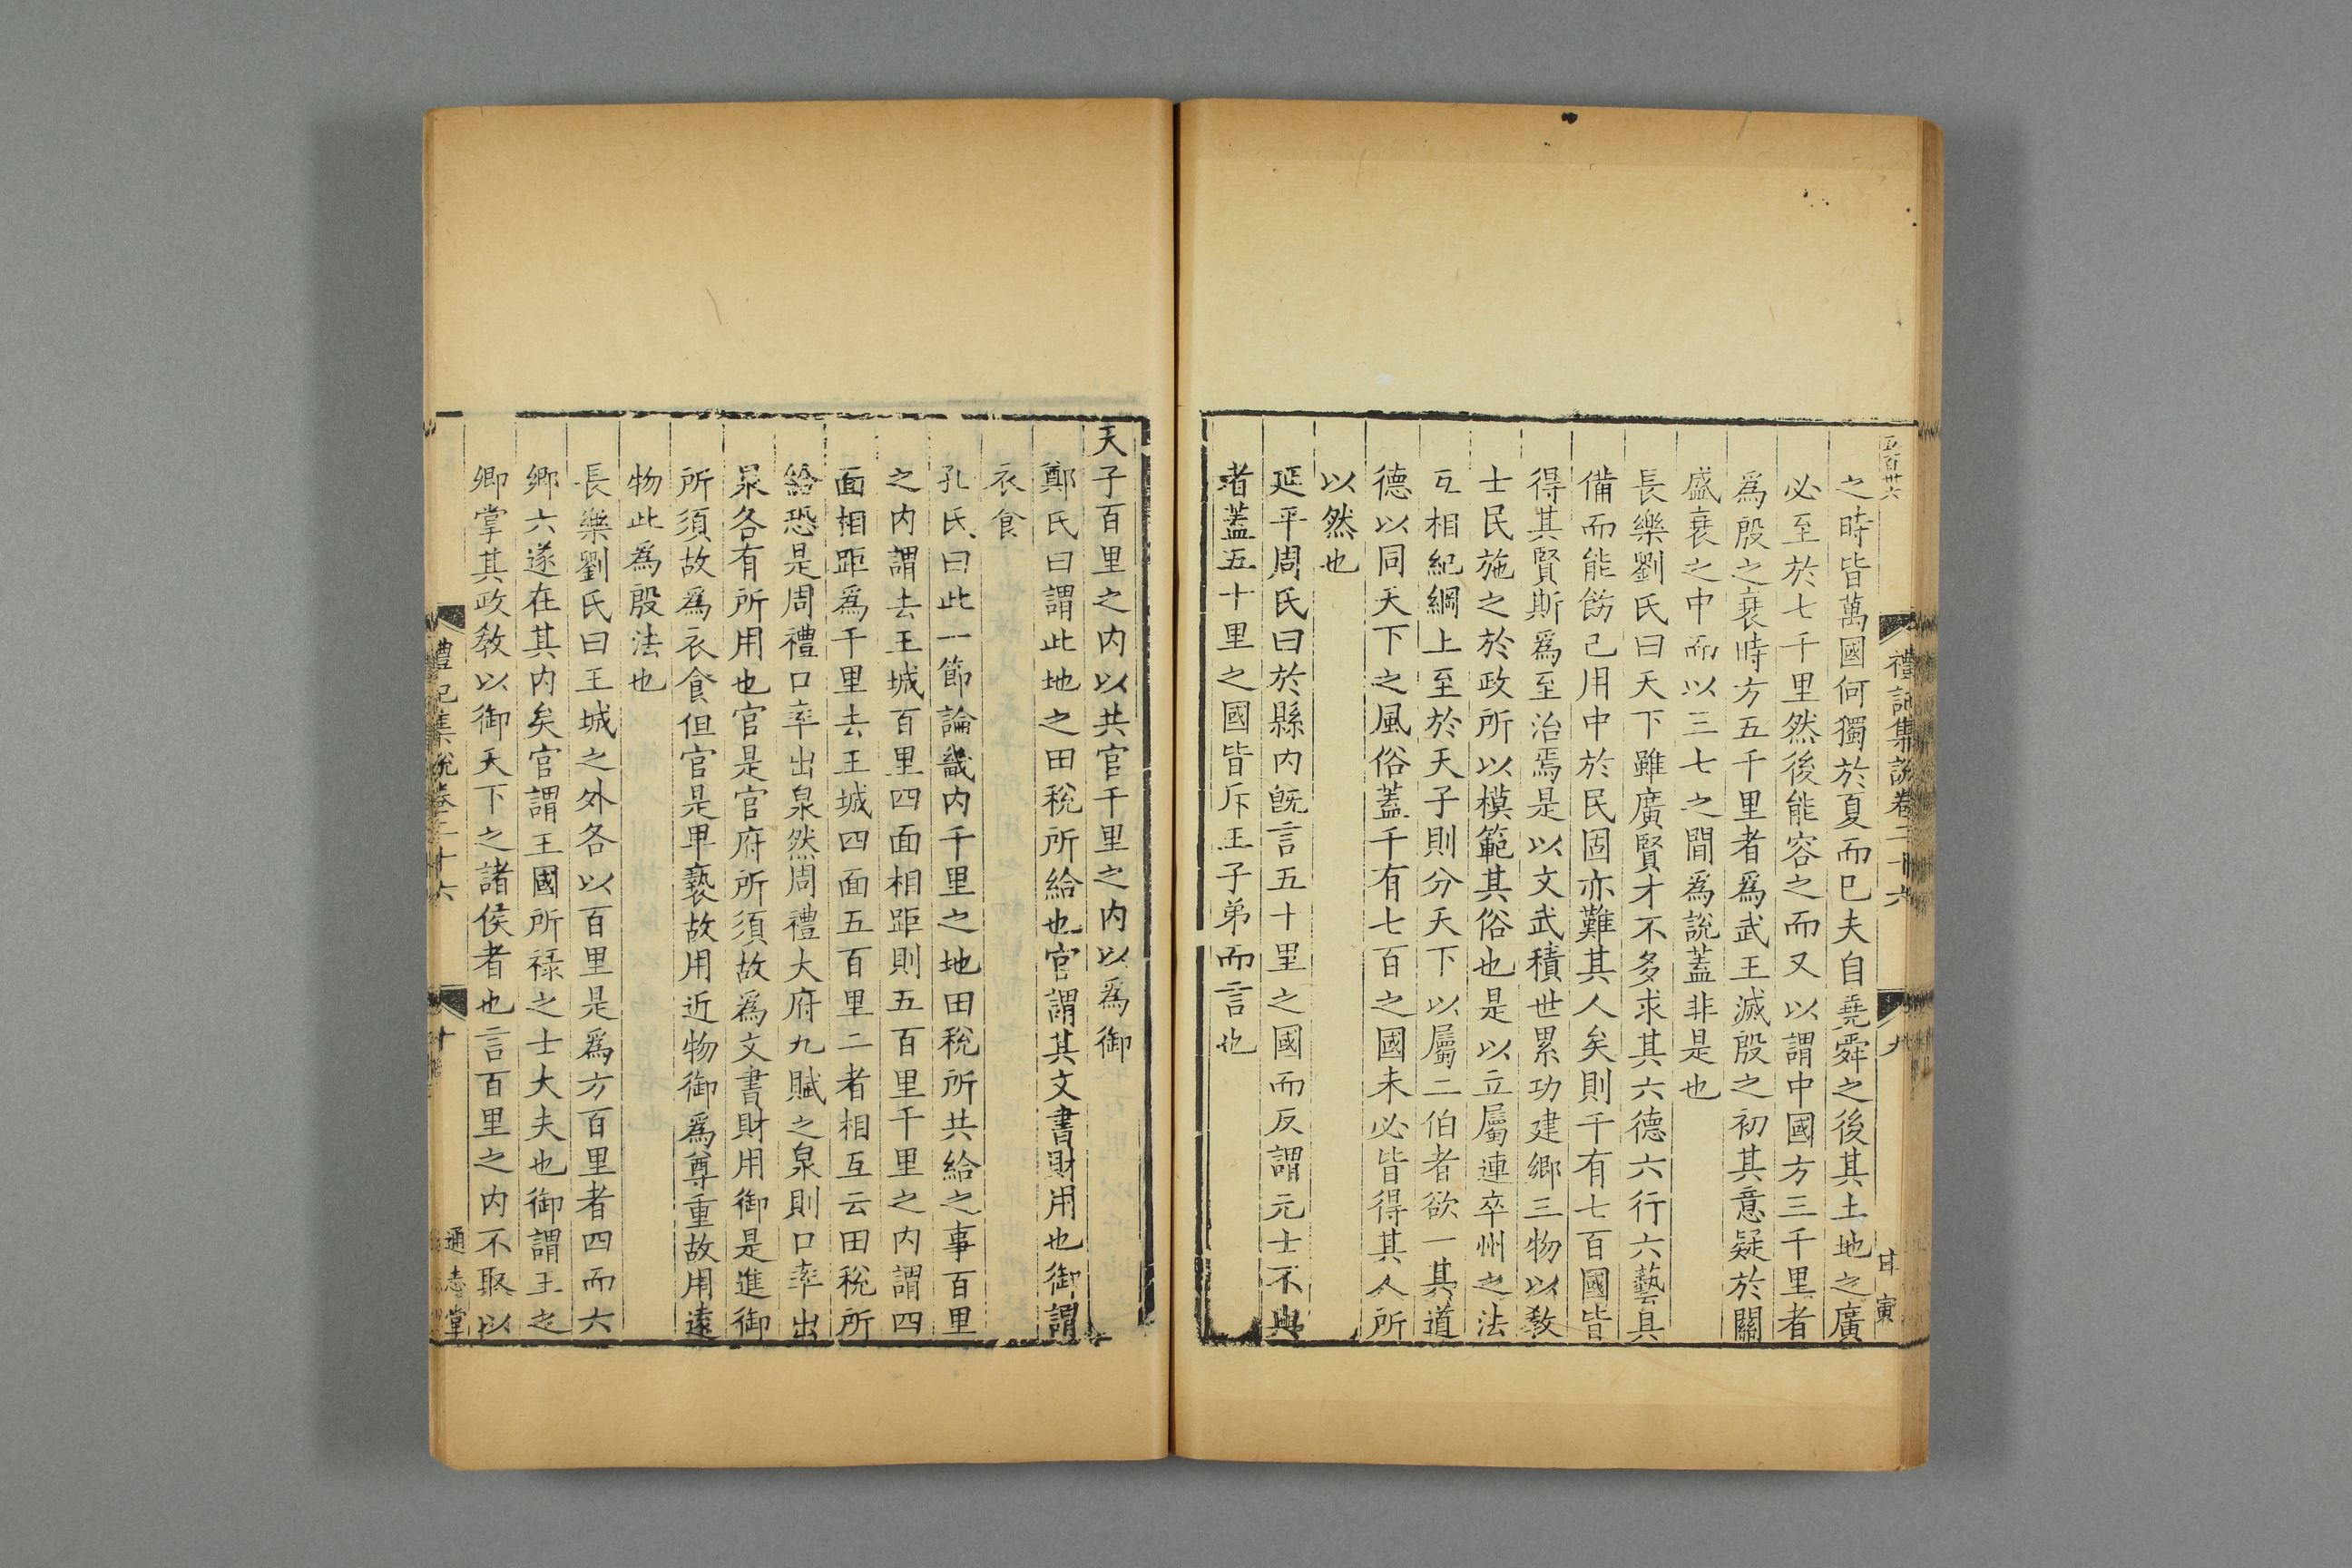 五百卅六
禮記集說卷二十六
九
甘寅
之時皆萬國何獨於夏而已夫自堯舜之後其土地之廣
必至於七千里然後能容之而又以謂中國方三千里者
爲殷之衰時方五千里者爲武王滅殷之初其意疑於關
盛衰之中而以三七之間爲說蓋非是也
長樂劉氏曰天下雖廣賢才不多求其六德六行六藝具
備而能飭己用中於民固亦難其人矣則千有七百國皆
得其賢斯爲至治焉是以文武積世累功建鄉三物以敎
士民施之於政所以模範其俗也是以立屬連卒州之法
互相紀綱上至於天子則分天下以屬二伯者欲一其道
德以同天下之風俗蓋千有七百之國未必皆得其人所
以然也
延平周氏曰於縣内旣言五十里之國而反謂元士不與
者蓋五十里之國皆斥王子弟而言也
天子百里之内以共官千里之内以爲御
鄭氏曰謂此地之田稅所給也官謂其文書財用也御謂
衣食
孔氏曰此一節論畿内千里之地田稅所共給之事百里
之内謂去王城百里四面相距則五百里千里之内謂四
面相距爲千里去王城四面五百里二者相互云田稅所
給恐是周禮口率出泉然周禮大府九賦之泉則口率出
泉各有所用也官是官府所須故爲文書財用御是進御
所須故爲衣食但官是卑褻故用近物御爲尊重故用遠
物此爲殷法也
長樂劉氏曰王城之外各以百里是爲方百里者四而六
鄉六遂在其内矣官謂王國所祿之士大夫也御謂王之
卿掌其政敎以御天下之諸侯者也言百里之内不取以
禮記集說卷二十六
十
通志堂